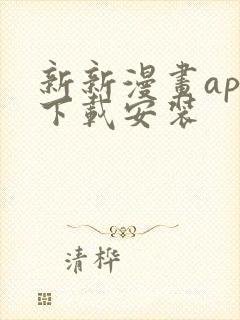 新新漫畫ap
下載安裝
清桦